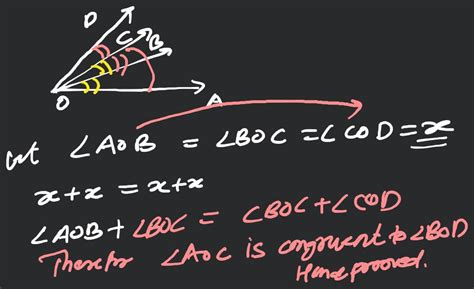 D
C
B
O
A
let ∠AOB = ∠BOC = ∠COD = x
x+x = x+x
∠AOB + ∠BOC = ∠BOC + ∠COD
Therefor ∠AOC is congruent to ∠BOD
Hence prooved.